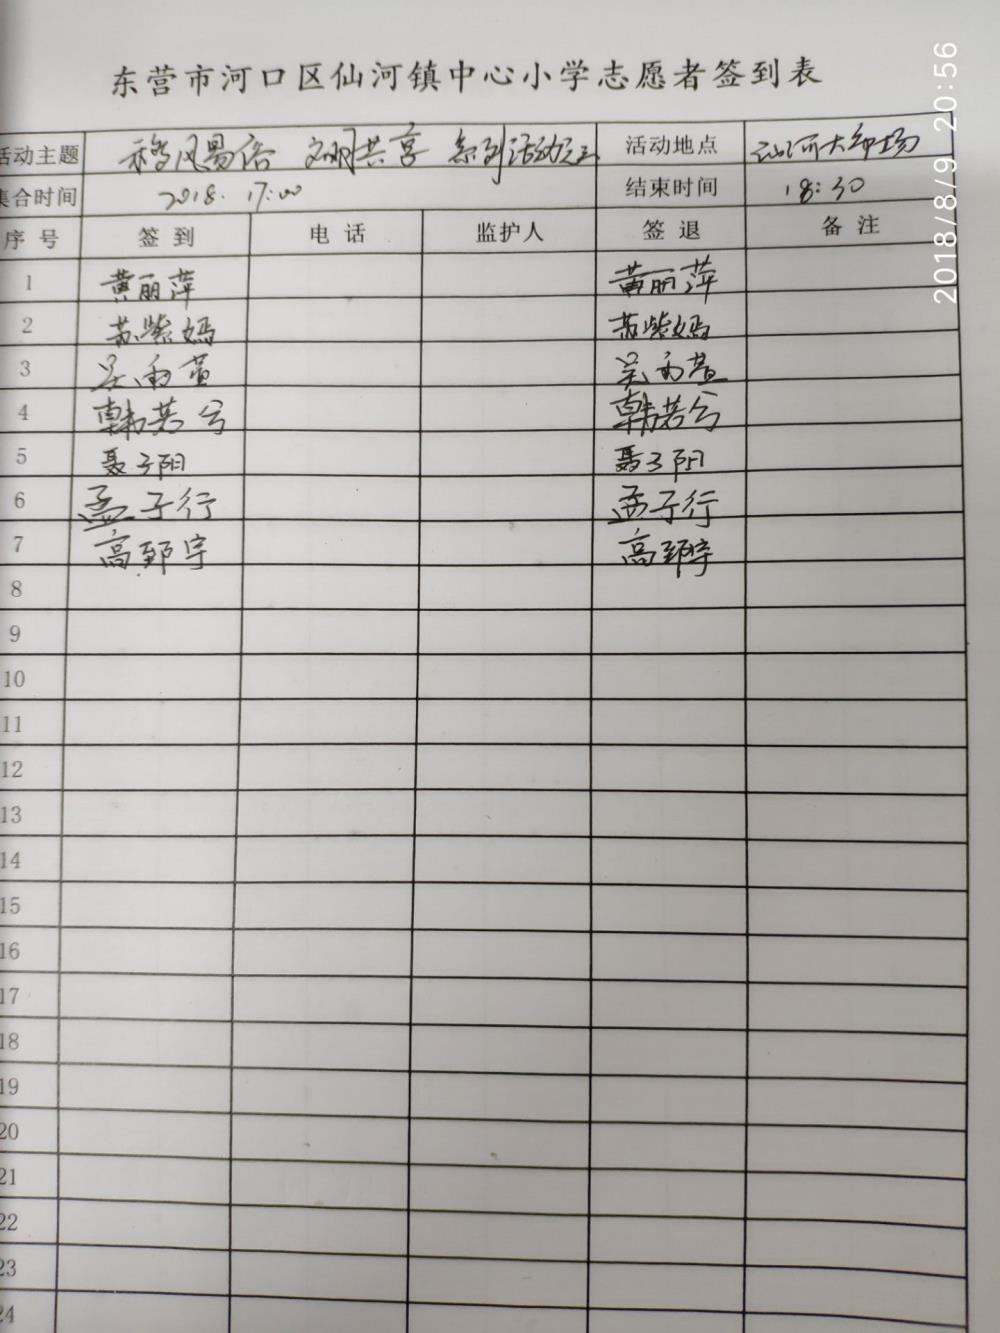 东营市河口区仙河镇中心小学志愿者签到表
活动主题 移风易俗 文明共享 系列活动之 活动地点 仙河大市场
集合时间 2018. 17:00 结束时间 18:30
序号 签到 电话 监护人 签退 备注
1 黄丽萍 黄丽萍
2 苏紫嫣 苏紫嫣
3 吴雨萱 吴雨萱
4 韩若兮 韩若兮
5 聂子阳 聂子阳
6 孟子行 孟子行
7 高郅宇 高郅宇
8
9
10
11
12
13
14
15
16
17
18
19
20
21
22
23
24
2018/8/9 20:56